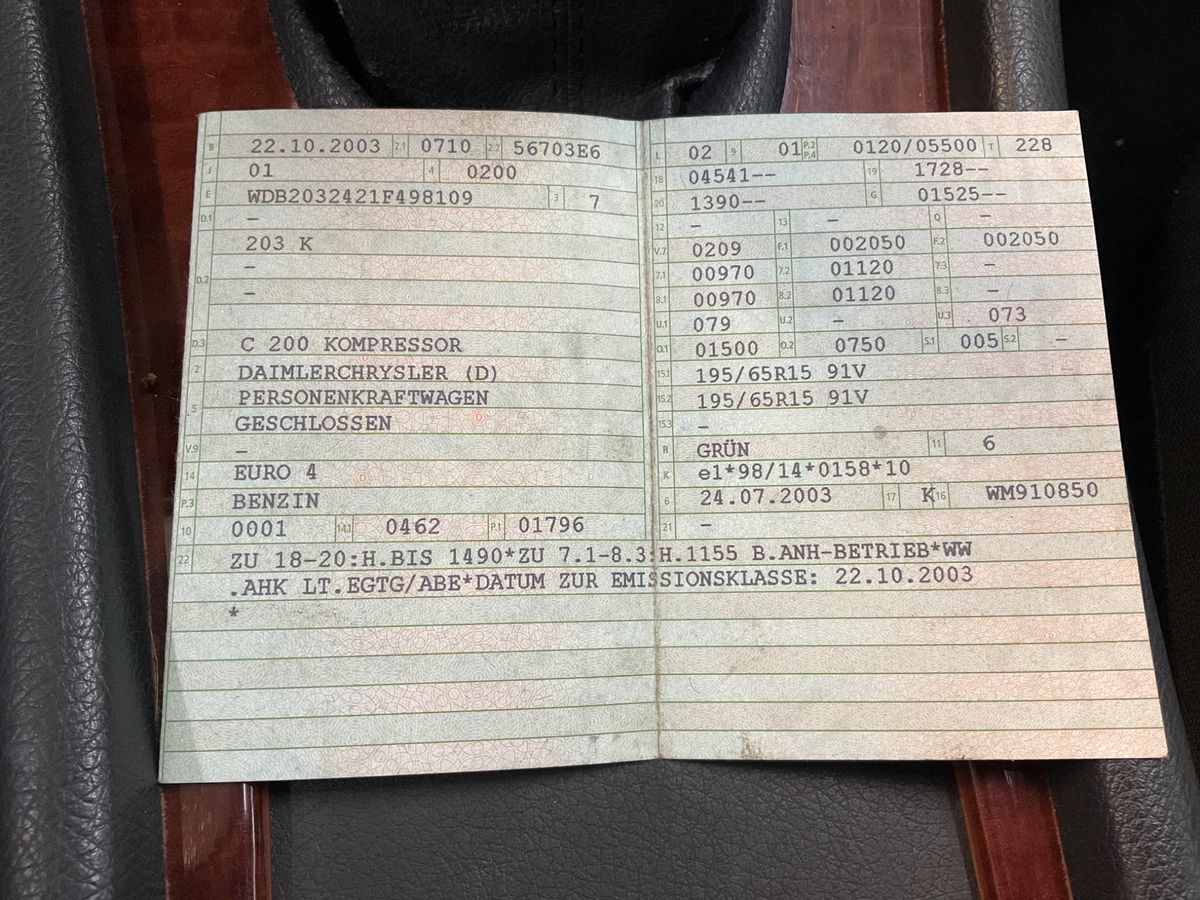 B 22.10.2003 2.1 0710 2.2 56703E6
J 01 4 0200
E WDB2032421F498109 3 7
D.1 –
203 K
D.2 –
–
D.3 C 200 KOMPRESSOR
2 DAIMLERCHRYSLER (D)
5 PERSONENKRAFTWAGEN
GESCHLOSSEN
V.9 –
14 EURO 4
P.3 BENZIN
10 0001 14.1 0462 P.1 01796
L 02 9 01 P.2 P.4 0120/05500 T 228
18 04541-- 19 1728--
20 1390-- G 01525--
12 – 13 – Q –
V.7 0209 F.1 002050 F.2 002050
7.1 00970 7.2 01120 7.3 –
8.1 00970 8.2 01120 8.3 –
U.1 079 U.2 – U.3 073
O.1 01500 O.2 0750 S.1 005 S.2 –
15.1 195/65R15 91V
15.2 195/65R15 91V
15.3 –
R GRÜN 11 6
K e1*98/14*0158*10
6 24.07.2003 17 K 16 WM910850
21 –
22 ZU 18-20:H.BIS 1490*ZU 7.1-8.3:H.1155 B.ANH-BETRIEB*WW
.AHK LT.EGTG/ABE*DATUM ZUR EMISSIONSKLASSE: 22.10.2003
*